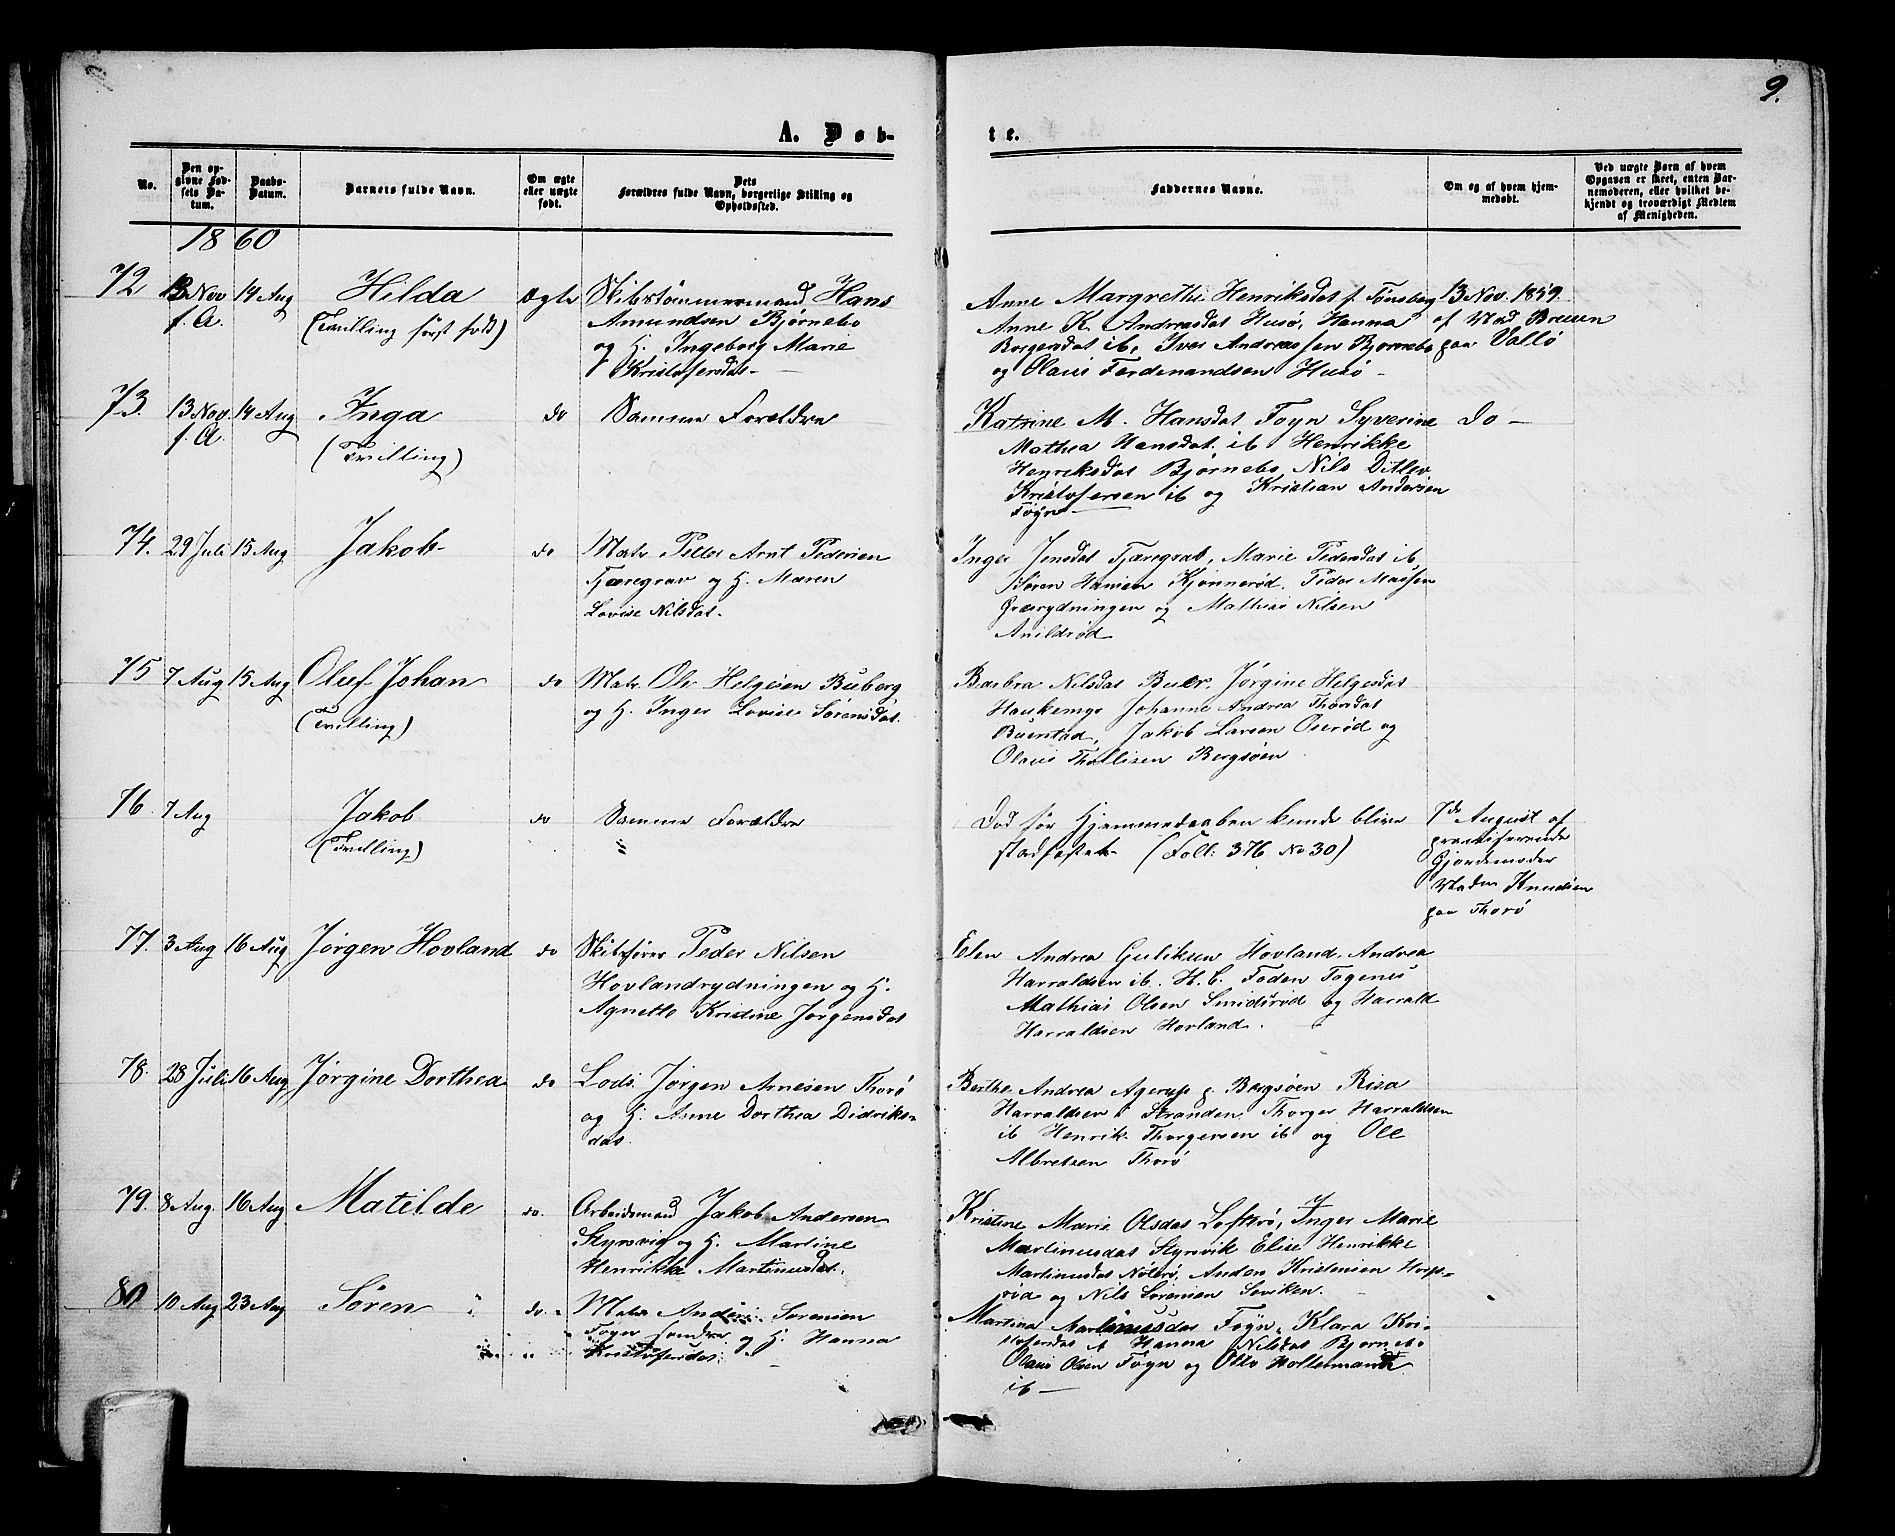 9.
A. Døb-
te.
No.
Den op-
givne Fød-
sels Da-
tum.
Daabs-
Datum.
Barnets fulde Navn.
Om ægte
eller uægte
født.
Dets
Forældres fulde Navn, borgerlige Stilling og
Opholdssted.
Faddernes Navne.
Om og af hvem hjem-
medøbt.
Ved uægte Børn af hvem
Opgaven er skeet, enten Bar-
nemoderen, eller hvilket be-
kjendt og troværdigt Medlem
af Menigheden.
1860
72 13 Nov 14 Aug Hilda ægte Skibstømmermand Hans
f. A. (Tvilling først født) Amundsen Bjørnebo
og H. Ingeborg Marie
Kristofersdat.
Anne Margrethe Henriksdat f. Tønsberg
Anne K. Andreasdat Husø, Hanna
Borgersdat ib, Iver Andreassen Bjørnebo
og Olaus Ferdenandsen Husø
13 Nov. 1859.
af Mad Breien
paa Vallø
73. 13 Nov. 14 Aug Inga do Samme Forældre
f. A. (Tvilling)
Katrine M. Hansdat Foyn Syverine
Mathea Hansdat. ib Henrikke
Henriksdat Bjørnebo, Nils Ditlev
Kristofersen ib og Kristian Andersen
Føyn
do
74. 29 Juli 15 Aug Jakob do Matr Peller Arnt Pedersen
Tjæregrav og H. Maren
Lovise Nilsdat.
Inger Jensdat Tjæregrav, Marie Pedersdat ib
Søren Hansen Kjønnerød. Peder Mathsen
Græsrydningen og Mathias Nilsen
Arildsrød
75 7 Aug 15 Aug Oluf Johan do Matr. Ole Helgesen Buberg
(Tvilling) og H. Inger Lovise Sørensdat.
Barbra Nilsdat Buer. Jørgine Helgesdat
Haukemyr Johanne Andrea Thordat
Buerstad, Jakob Larsen Oserød og
Olaus Thollisen Bergsøen
76. 7 Aug Jakob do Samme Forældre
(Tvilling) "
Død før Hjemmedaaben kunde blive
stadfæstet (Foll: 376 No 30)
7de August af
practiserende
Gjordemoder
Madm Knudsen
paa Thorø
77. 3 Aug 16 Aug Jørgen Hovland do Skibsfører Peder Nilsen
Hovlandrydningen og H.
Agnette Kristine Jørgensdat
Elen Andrea Guliksen Hovland, Andrea
Harraldsen ib. H. C. Foden Fogenes
Mathias Olsen Smidsrød og Harrald
Harraldsen Hovland.
78. 28 Juli 16 Aug Jørgine Dorthea do Lods. Jørgen Arnesen Thorø
og H: Anne Dorthea Didriks-
dat.
Berthe Andrea Agerup p. Bergsøen Risa
Harraldsen Stranden, Thorger Harraldsen
ib Henrik Thorgersen ib og Ole
Albretsen Thorø
79. 8 Aug. 16 Aug. Matilde do. Arbeidsmand Jakob Andersen
Styrsvig og H. Martine
Henrikke Martinusdat.
Kristine Marie Olsdat Løfterø, Inger Marie
Martinusdat Styrsvik Elise Henrikke
Martinusdat Nøterø, Anders Kristensen Horp-
og Nils Sørensen
80 10 Aug 23 Aug Søren do. Matr Anders Sørensen
Føyn søndre og H. Hanna
Kristofersdat.
Martina Martinusdat Føyn, Klara Kri-
stofersdat ib Hanna Nilsdat Bjørnebo
Olaus Olsen Føyn og Otto Holtermann
ib